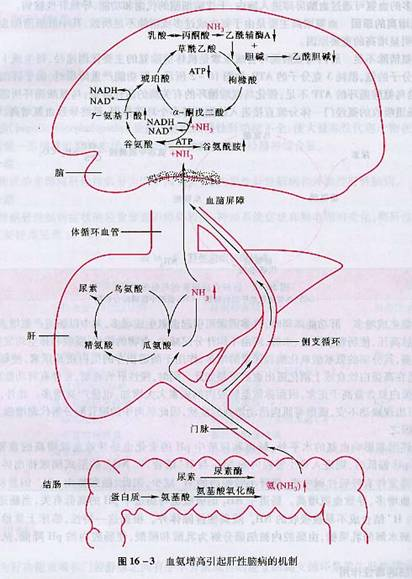 NH₃
乳酸→丙酮酸→乙酰辅酶A↓
草酰乙酸
+
胆碱→乙酰胆碱↓
ATP↓
琥珀酸
枸橼酸
NADH
NAD⁺
γ-氨基丁酸↑
α-酮戊二酸
NADH
NAD⁺
+NH₃
谷氨酸
ATP
谷氨酰胺↑
+NH₃
脑
血脑屏障
体循环血管
尿素
鸟氨酸
NH₃↑
肝
精氨酸
瓜氨酸
侧支循环
门脉
结肠
尿素
尿素酶
氨(NH₃)↑
蛋白质→氨基酸
氨基酸氧化酶
图 16-3 血氨增高引起肝性脑病的机制